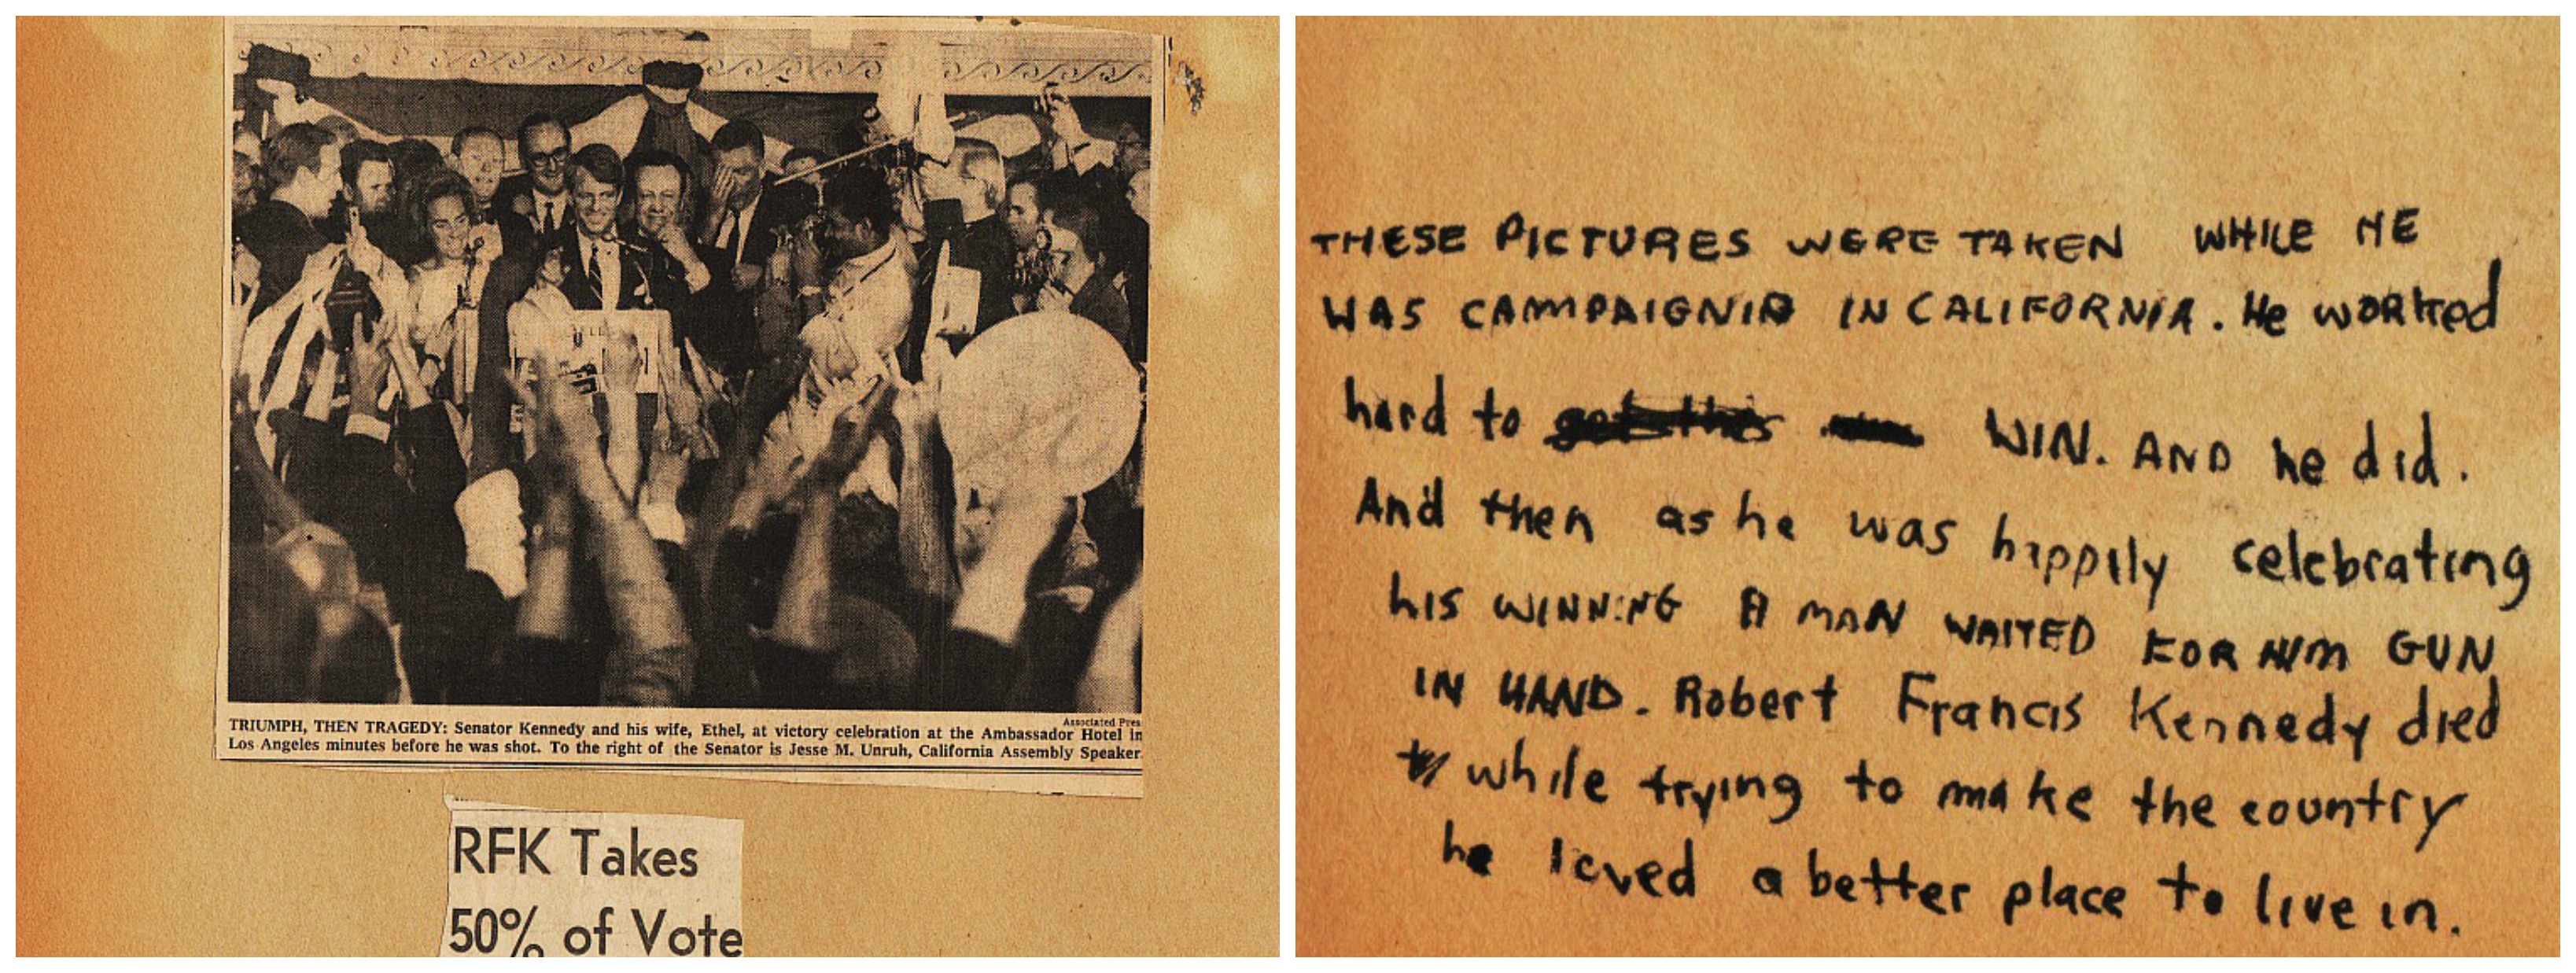 Associated Pres
TRIUMPH, THEN TRAGEDY: Senator Kennedy and his wife, Ethel, at victory celebration at the Ambassador Hotel in
Los Angeles minutes before he was shot. To the right of the Senator is Jesse M. Unruh, California Assembly Speaker.
RFK Takes
50% of Vote
THESE PICTURES WERE TAKEN WHILE HE
WAS CAMPAIGNIN IN CALIFORNIA. He worked
hard to WIN. AND he did.
And then as he was happily celebrating
his WINNING A MAN WAITED FOR HIM GUN
IN HAND. Robert Francis Kennedy died
while trying to make the country
he loved a better place to live in.